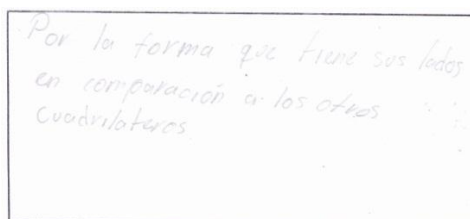 Por la forma que tiene sus lados
en comparación a los otros
cuadrilateros